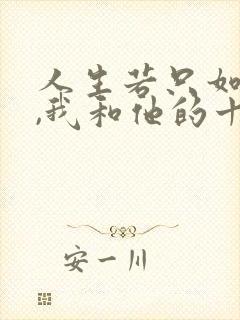 人生若只如
,我和他的十
安一川